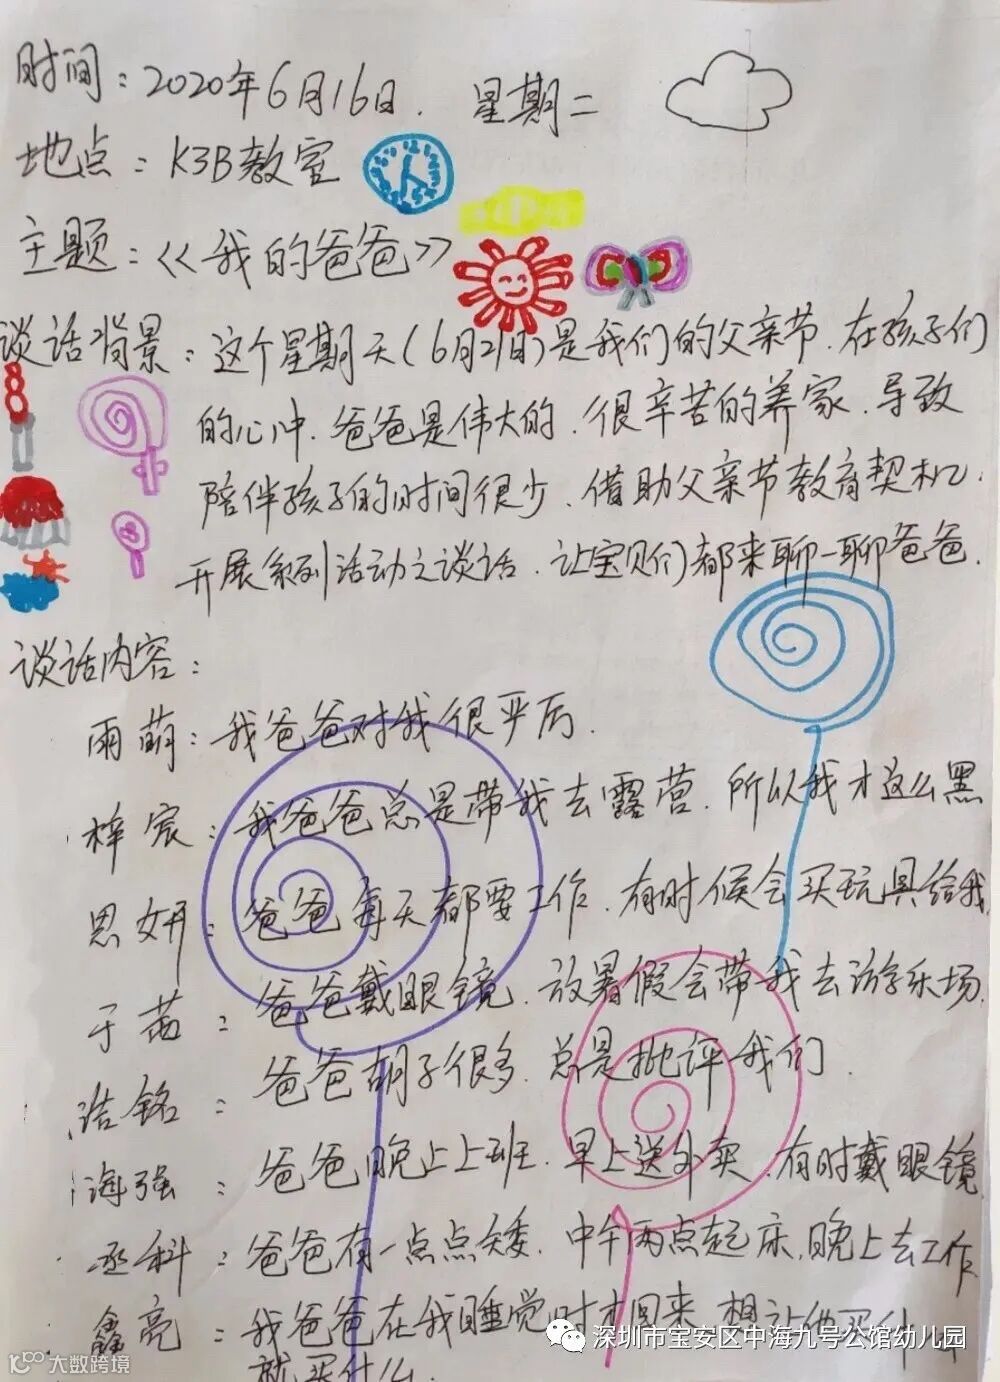 时间：2020年6月16日. 星期二
地点：K3B教室
主题：《我的爸爸》
谈话背景：这个星期天(6月21日)是我们的父亲节.在孩子们
的心中.爸爸是伟大的.很辛苦的养家.导致
陪伴孩子的时间很少.借助父亲节教育契机.
开展系列活动之谈话.让宝贝们都来聊一聊爸爸.
谈话内容：
雨萌：我爸爸对我很严厉.
梓宸：我爸爸总是带我去露营.所以我才这么黑
思妍：爸爸每天都要工作.有时候会买玩具给我.
于茜：爸爸戴眼镜.放暑假会带我去游乐场.
浩铭：爸爸胡子很多.总是批评我们.
海强：爸爸晚上上班.早上送外卖.有时戴眼镜.
丞科：爸爸有一点点矮.中午两点起床.晚上去工作
鑫亮：我爸爸在我睡觉时才回来.想让他买什
就买什么.
深圳市宝安区中海九号公馆幼儿园
大数跨境